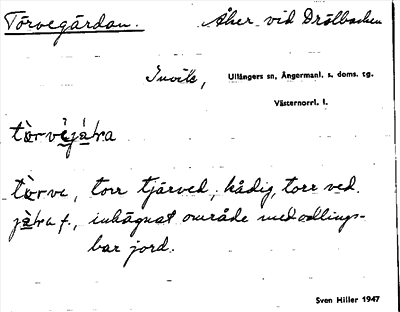 Törvegärdan. Åker vid Drölbacken
Invik, Ullångers sn, Ångermanl. s. doms. tg.
Västernorrl. l.
tòrvejàɫra
tòrve, torr tjärved, kådig, torr ved.
jàɫra f., inhägnat område med odlings-
bar jord.
Sven Hiller 1947